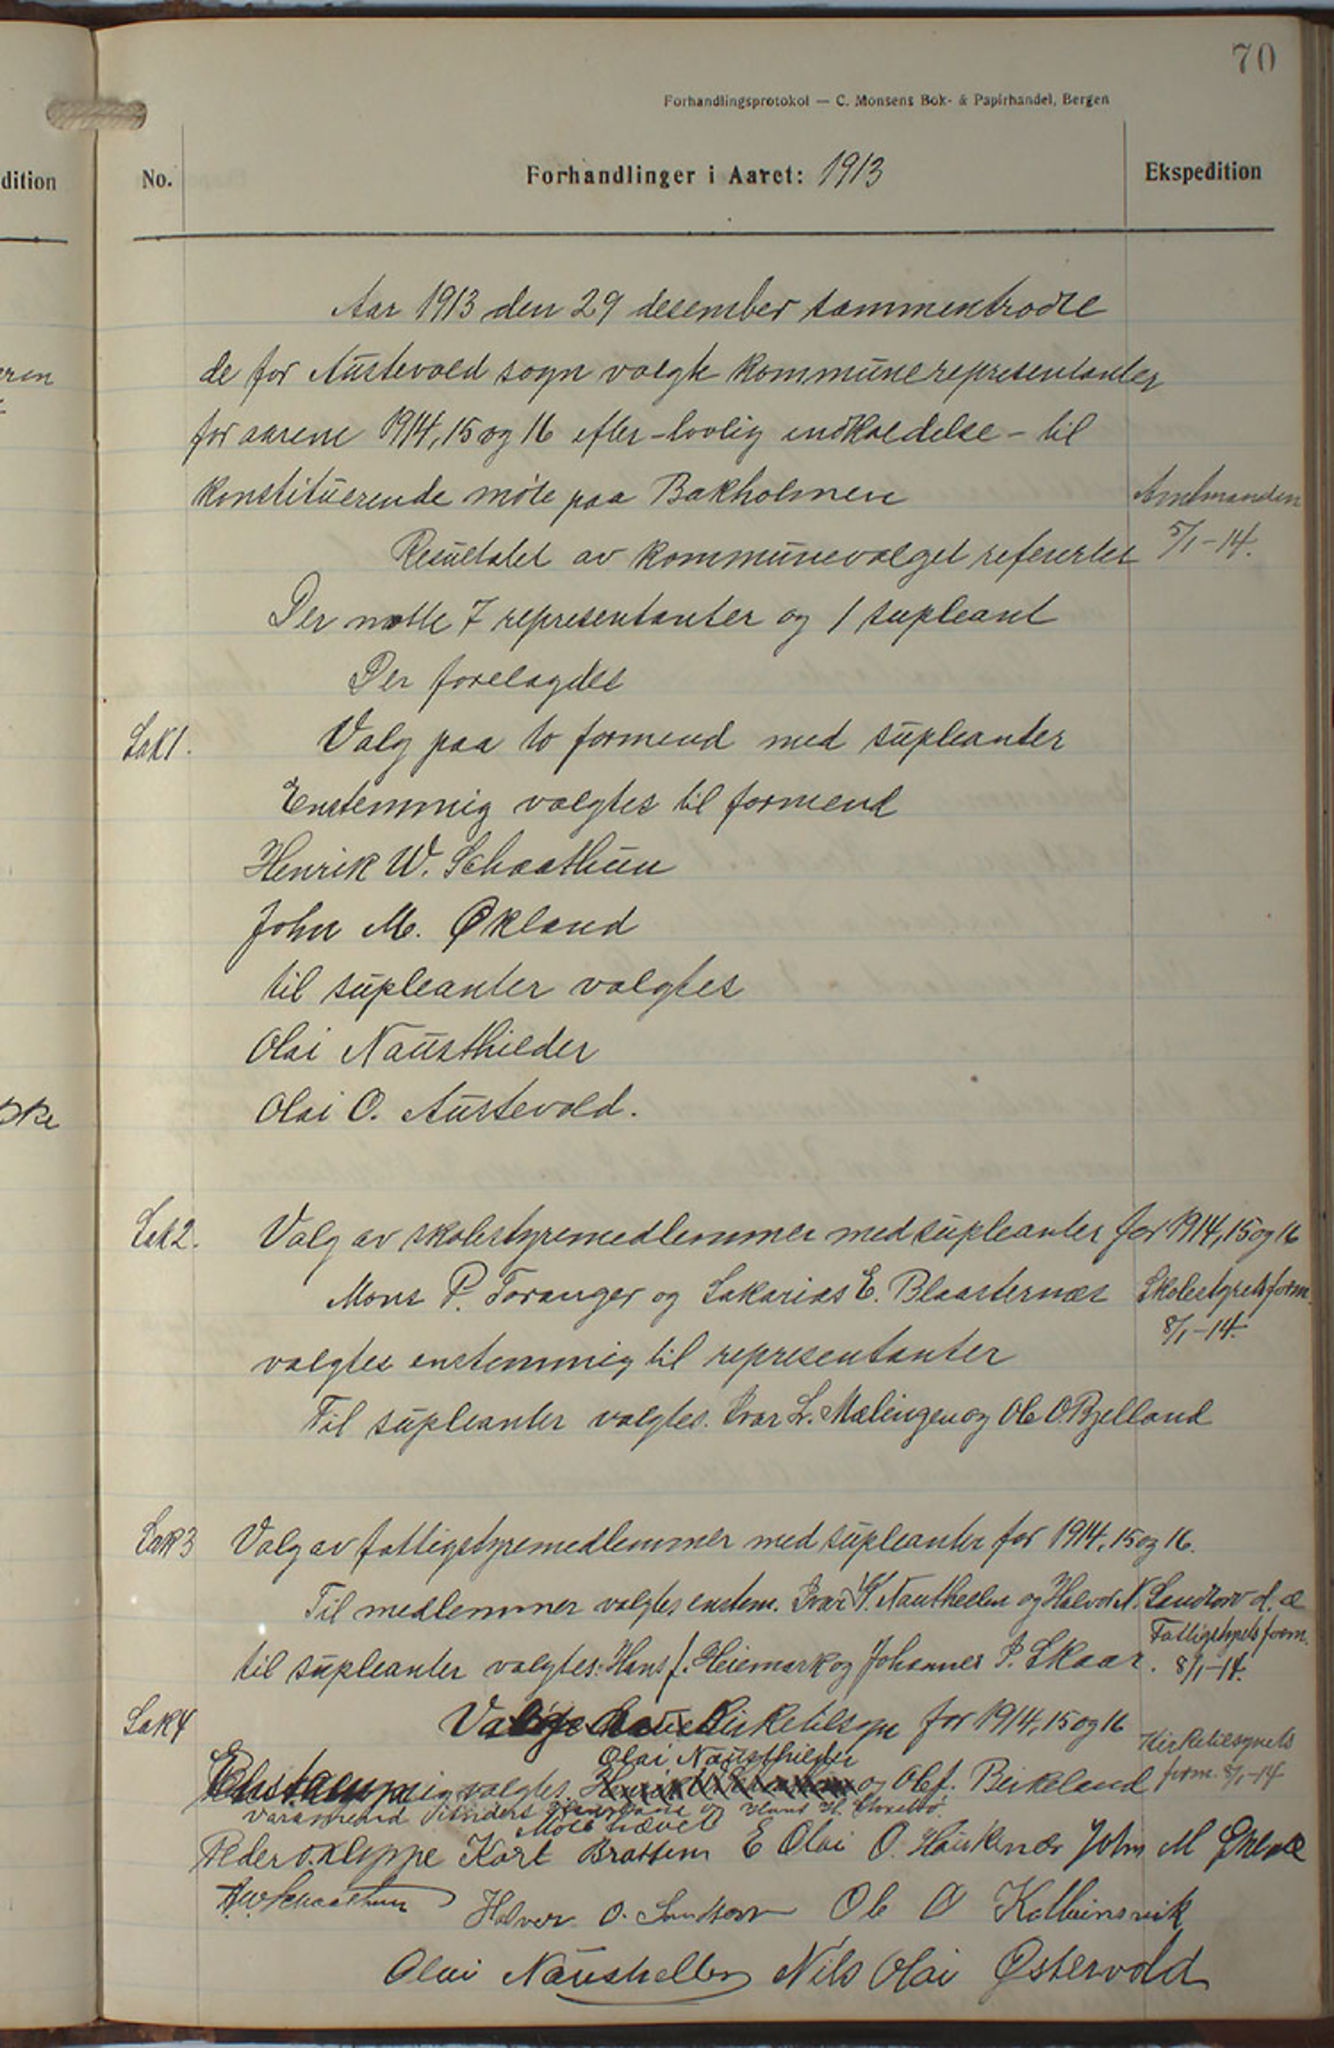 70
Forhandlingsprotokol — C. Monsens Bok- & Papirhandel, Bergen
dition
No.
Forhandlinger i Aaret: 1913
Ekspedition
Aar 1913 den 29 desember sammentraadte
de for Austevold sogn valgte kommunerepresentanter
for aarene 1914, 15 og 16 efter - lovlig indkaldelse - til
konstituerende møte paa Bakholmen
Amtmanden
5/1-14.
Resultatet av kommunevalget refertes
Der møtte 7 representanter og 1 supleant
Der forelagdes
Sak 1.
Valg paa to formend med supleanter
Enstemmig valgtes til formend
Henrik W. Schaathun
John M. Økland
til supleanter valgtes
Olai Nausthilder
Olai O. Austevold.
Sak 2.
Valg av skolestyremedlemmer med supleanter for 1914, 15 og 16
Mons P. Toranger og Sakarias E. Blaasternæs
Skolestyrets form.
8/1-14.
valgtes enstemmig til representanter
Til supleanter valgtes. Ivar L. Mælingen og Ole O. Bjelland
Sak 3
Valg av fattigstyremedlemmer med supleanter for 1914, 15 og 16.
Til medlemmer valgtes enstem. Ivar Nausthellen og Halvor N. Sandtorv d. æ
Fattigstyrets form.
8/1-14.
til supleanter valgtes: Hans J. Heimark og Johannes P. Skaar.
Sak 4
Valg Kirketilsyn for 1914, 15 og 16
Kirketilsynets
form. 8/1-14
Olai Nausthilder
Enstemmig valgtes. og Ole J. Birkeland
Varamænd og Hans H.
Møte hævet
Peder O. Kleppe Karl Brattem E Olai O. Haukenæs John M Økland
H W Schaathun Halvor O. Sandtorv Ole O Kolbeinsvik
Olai Naushellen Nils Olai Østervold